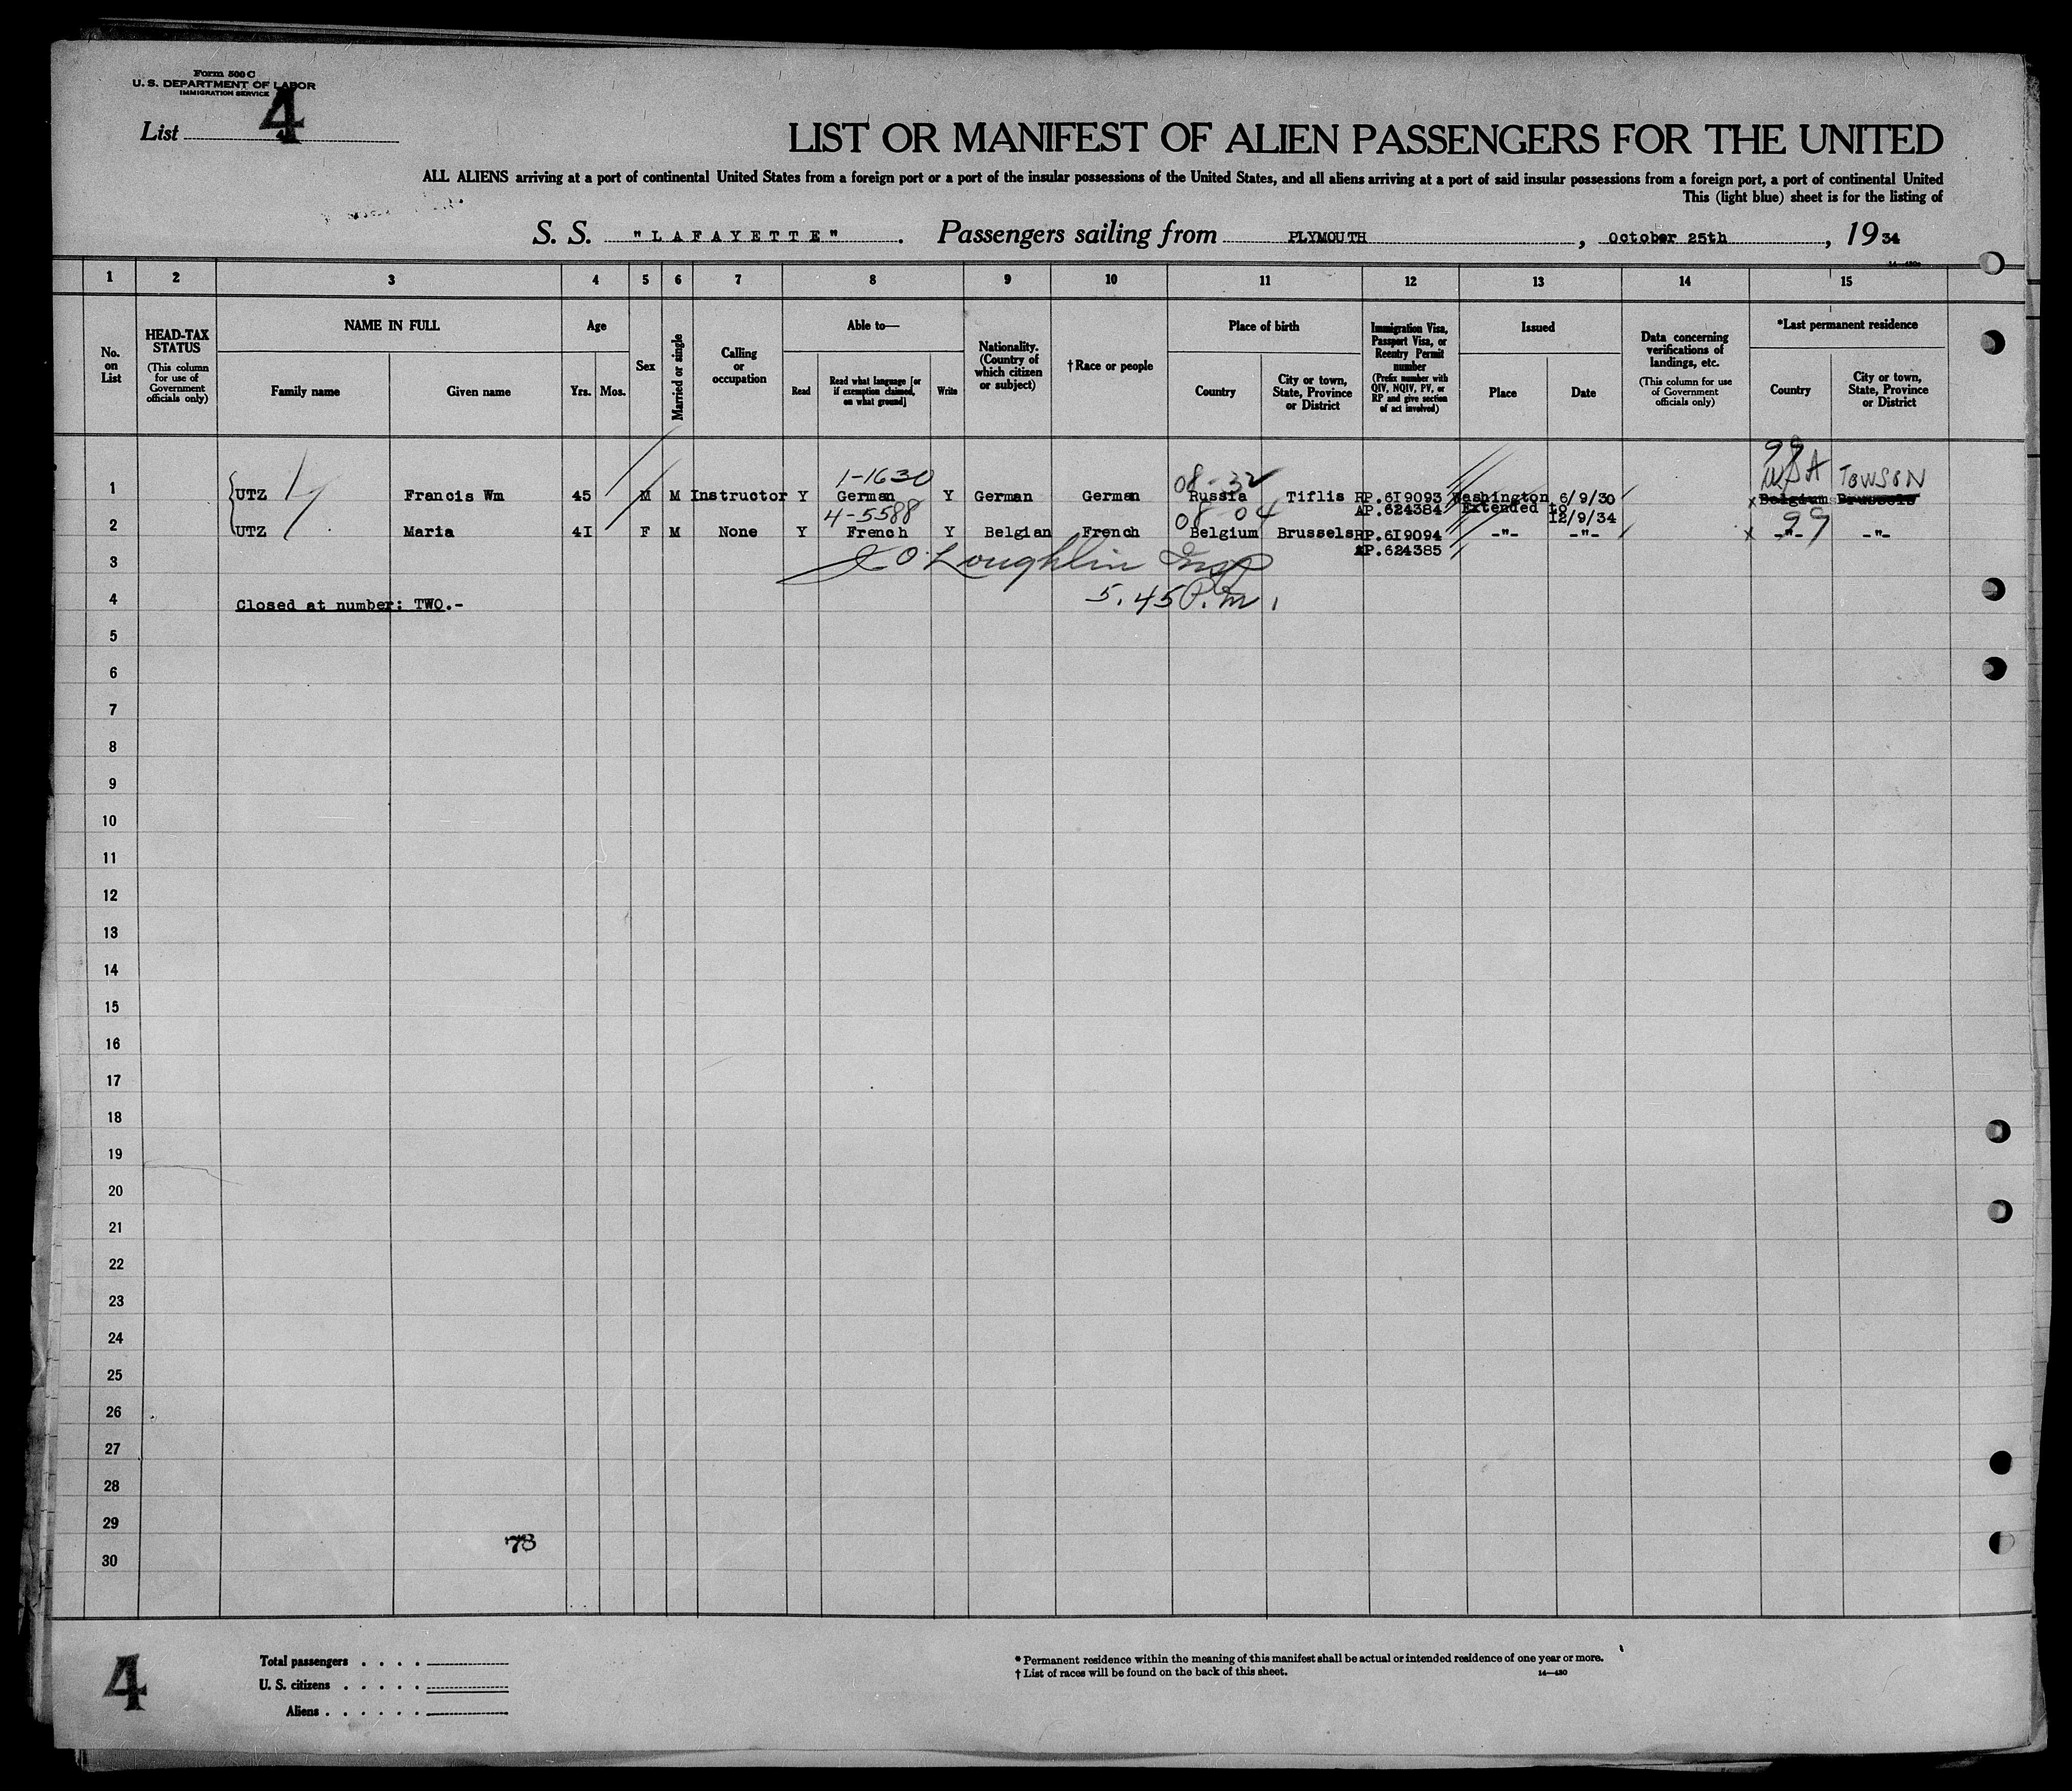 Form 500 C
U. S. DEPARTMENT OF LABOR
IMMIGRATION SERVICE
List 4
LIST OR MANIFEST OF ALIEN PASSENGERS FOR THE UNITED
ALL ALIENS arriving at a port of continental United States from a foreign port or a port of the insular possessions of the United States, and all aliens arriving at a port of said insular possessions from a foreign port, a port of continental United
This (light blue) sheet is for the listing of
S. S. "LAFAYETTE". Passengers sailing from PLYMOUTH, October 25th, 1934
1 2 3 4 5 6 7 8 9 10 11 12 13 14 15
No. on List
HEAD-TAX STATUS
(This column for use of Government officials only)
NAME IN FULL
Family name
Given name
Age
Yrs. Mos.
Sex
Married or single
Calling or occupation
Able to—
Read
Read what language [or if exemption claimed, on what ground]
Write
Nationality. (Country of which citizen or subject)
† Race or people
Place of birth
Country
City or town, State, Province or District
Immigration Visa, Passport Visa, or Reentry Permit number
(Prefix number with QIV, NQIV, PV, or RP and give section of act involved)
Issued
Place
Date
Data concerning verifications of landings, etc.
(This column for use of Government officials only)
*Last permanent residence
Country
City or town, State, Province or District
99
1-1630 08-32 USA TOWSON
1 UTZ Francis Wm 45 M M Instructor Y German Y German German Russia Tiflis RP.6I9093 Washington 6/9/30 x Belgium Brussels
AP.624384 Extended to 12/9/34
4-5588 08 04 99
2 UTZ Maria 4I F M None Y French Y Belgian French Belgium Brussels RP.6I9094 -"- -"- x -"- -"-
AP.624385
3 J O'Loughlin Insp
4 Closed at number: TWO.- 5.45 P.m.
5
6
7
8
9
10
11
12
13
14
15
16
17
18
19
20
21
22
23
24
25
26
27
28
29
78
30
4
Total passengers . . . .
U. S. citizens . . . . .
Aliens . . . . . .
* Permanent residence within the meaning of this manifest shall be actual or intended residence of one year or more.
† List of races will be found on the back of this sheet. 14—430